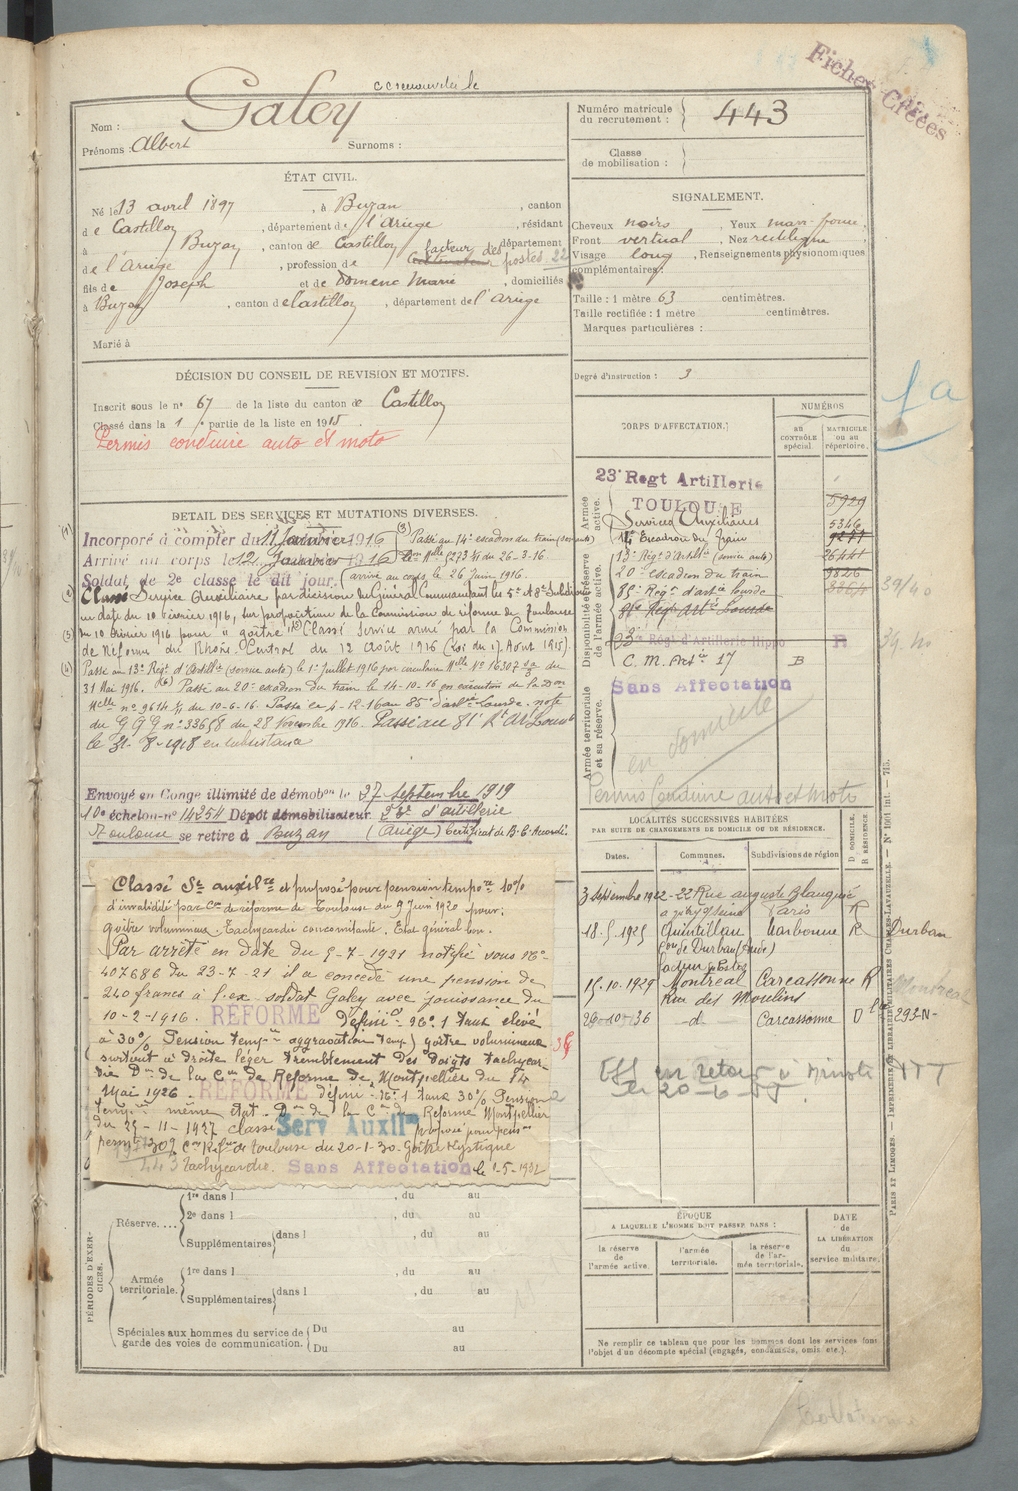 Fiches Créées
Nom : Galey
Prénoms : Albert Surnoms :
Numéro matricule du recrutement : 443
Classe de mobilisation :
ÉTAT CIVIL.
Né le 13 avril 1897, à Buzan, canton
de Castillon, département de l'Ariège, résidant
à Buzan, canton de Castillon, département
de l'Ariège, profession de cultivateur facteur des postes 22
fils de Joseph et de Domenc Marie, domiciliés
à Buzan, canton de Castillon, département de l'Ariège
Marié à
SIGNALEMENT.
Cheveux noirs, Yeux marr. fonc.
Front vertical, Nez rectiligne
Visage long, Renseignements physionomiques
complémentaires :
Taille : 1 mètre 63 centimètres.
Taille rectifiée : 1 mètre centimètres.
Marques particulières :
Degré d'instruction : 3
DÉCISION DU CONSEIL DE REVISION ET MOTIFS.
Inscrit sous le n° 67 de la liste du canton de Castillon
Classé dans la 1 partie de la liste en 1915
Permis conduire auto et moto
DETAIL DES SERVICES ET MUTATIONS DIVERSES.
(1) Incorporé à compter du 11 Janvier 1916
Arrivé au corps le 12 Janvier 1916
Soldat de 2e classe le dit jour.
(3) Passé au 14e escadron du train
du 26-3-16
arrivé au corps le 26 Juin 1916.
(2) Classé Service Auxiliaire par décision du Général Commandant les 5e et 8e Subdivisions
en date du 10 février 1916, sur proposition de la Commission de réforme de Toulouse
du 10 février 1916 pour "goitre" Classé Service armé par la Commission
de Réforme du Rhône Central du 12 Août 1916 (Loi du 17 Aout 1915).
(4) Passé au 13e Régt d'Artillie (service auto) le 1er Juillet 1916 par circulaire Melle N° 16307 du
31 Mai 1916. Passé au 20e escadron du train le 14-10-16 en exécution de la Don
Melle n° 9614 du 10-6-16. Passé le 4-12-16 au 85e d'artie Lourde. note
du G Q G n° 33658 du 28 Novembre 1916. Passé au 81e Rt Art Lourde
le 31-8-1918 en subsistance
Envoyé en Congé illimité de démobon le 27 septembre 1919
10e échelon n° 14354 Dépôt démobilisateur 23e d'artillerie
Toulouse se retire à Buzan (Ariège) Certificat de B. C. Accordé.
Classé Sce auxilre et proposé pour pension tempre 10%
d'invalidité par Con de réforme de Toulouse du 9 Juin 1920 pour:
goitre volumineux. Tachycardie concomitante. Etat général bon.
Par arrêté en date du 5-7-1921 notifié sous N°
407686 du 23-7-21 il a concédé une pension de
240 francs à l'ex-soldat Galey avec jouissance du
10-2-1916. RÉFORMÉ Définif N° 1 taux élevé
à 30% Pension tempre aggravation (temp.) goitre volumineux
surtout à droite léger tremblement des doigts tachycar-
die Don de la Con de Reforme de Montpellier du 14
Mai 1926. RÉFORMÉ défini N° 1 taux 30% Pension
tempre même état. Don de la Con de Réforme Montpellier
du 25-11-1927 classé Serv Auxilre proposé pour pension
permte 30% Con Réfme de Toulouse du 20-1-30. Goitre kystique
tachycardie. Sans Affectation le 1-5-1932
CORPS D'AFFECTATION.
NUMÉROS
AU CONTRÔLE spécial.
MATRICULE ou au répertoire.
Armée active.
Disponibilité et réserve de l'armée active.
Armée territoriale et sa réserve.
23e Regt Artillerie
TOULOUSE 5929
Services Auxiliaires 5346
14e Escadron du Train
13e Régt d'Artillie (service auto) 26441
20e escadron du train 9826
85e Régt d'artie lourde
81e Régt Artie Lourde
23e Régt d'Artillerie Hippo R
C. M. Artie 17 B
Sans Affectation
en domicile
Permis Conduire auto et moto
fa
39/40
LOCALITÉS SUCCESSIVES HABITÉES
PAR SUITE DE CHANGEMENTS DE DOMICILE OU DE RÉSIDENCE.
Dates. Communes. Subdivisions de région D DOMICILE, R RÉSIDENCE.
3 septembre 1922 22 Rue auguste Blanqui
à Ivry s/Seine Paris R
18-5-1925 Quintillan Narbonne R Durban
Con de Durban (Aude)
facteur des Postes
15-10-1929 Montréal Carcassonne R Montréal
Rue des Moulins
29-10-36 -d- Carcassonne D 293-N-
Aff en retour Ministe PTT
le 20-6
ÉPOQUE
A LAQUELLE L'HOMME DOIT PASSER DANS :
la réserve de l'armée active.
l'armée territoriale.
la réserve de l'armée territoriale.
DATE de LA LIBÉRATION du service militaire.
PÉRIODES D'EXERCICES.
Réserve.... 1re dans l , du au
2e dans l , du au
Supplémentaires dans l , du au
Armée territoriale. 1re dans l , du au
Supplémentaires dans l , du au
Spéciales aux hommes du service de garde des voies de communication. Du au
Du au
Ne remplir ce tableau que pour les hommes dont les services font
l'objet d'un décompte spécial (engagés, condamnés, omis etc.).
PARIS ET LIMOGES. — IMPRIMERIE ET LIBRAIRIE MILITAIRES CHARLES-LAVAUZELLE. — N° 1601 int. — 715.